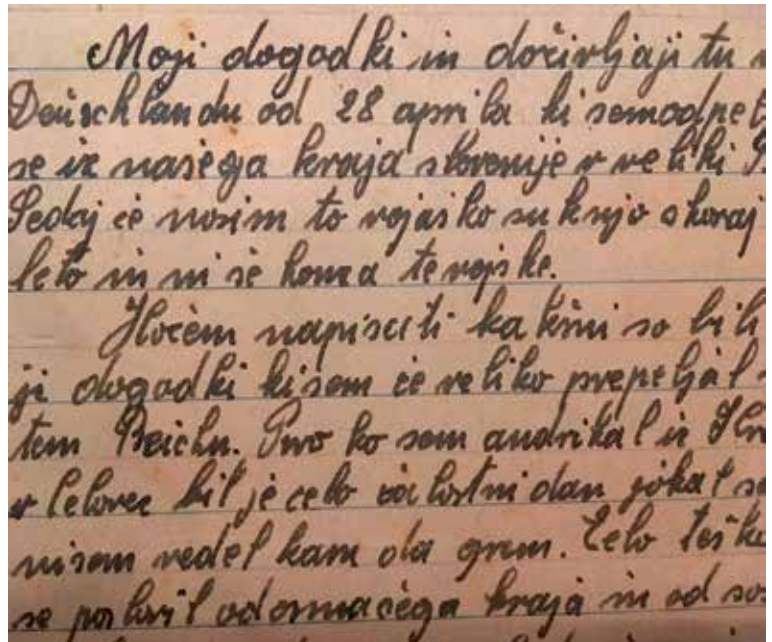 Moji dogodki in dočivljaji tu
Deüschlandu od 28 aprila ki semodpet
se iz našega kraja slovenije v veliki
Sedaj če nosim to vojaško suknjo skoraj
leto in ni še konza te vojske.
Hočem napisati kakšni so bili
ji dogodki kisem če veliko prepeljal
tem Reichu. Prvo ko sem andrikal iz
v Celovec bil je celo žalostni dan jokal
nisem vedel kam da grem. Celo teško
se poslovil oddomačega kraja in od